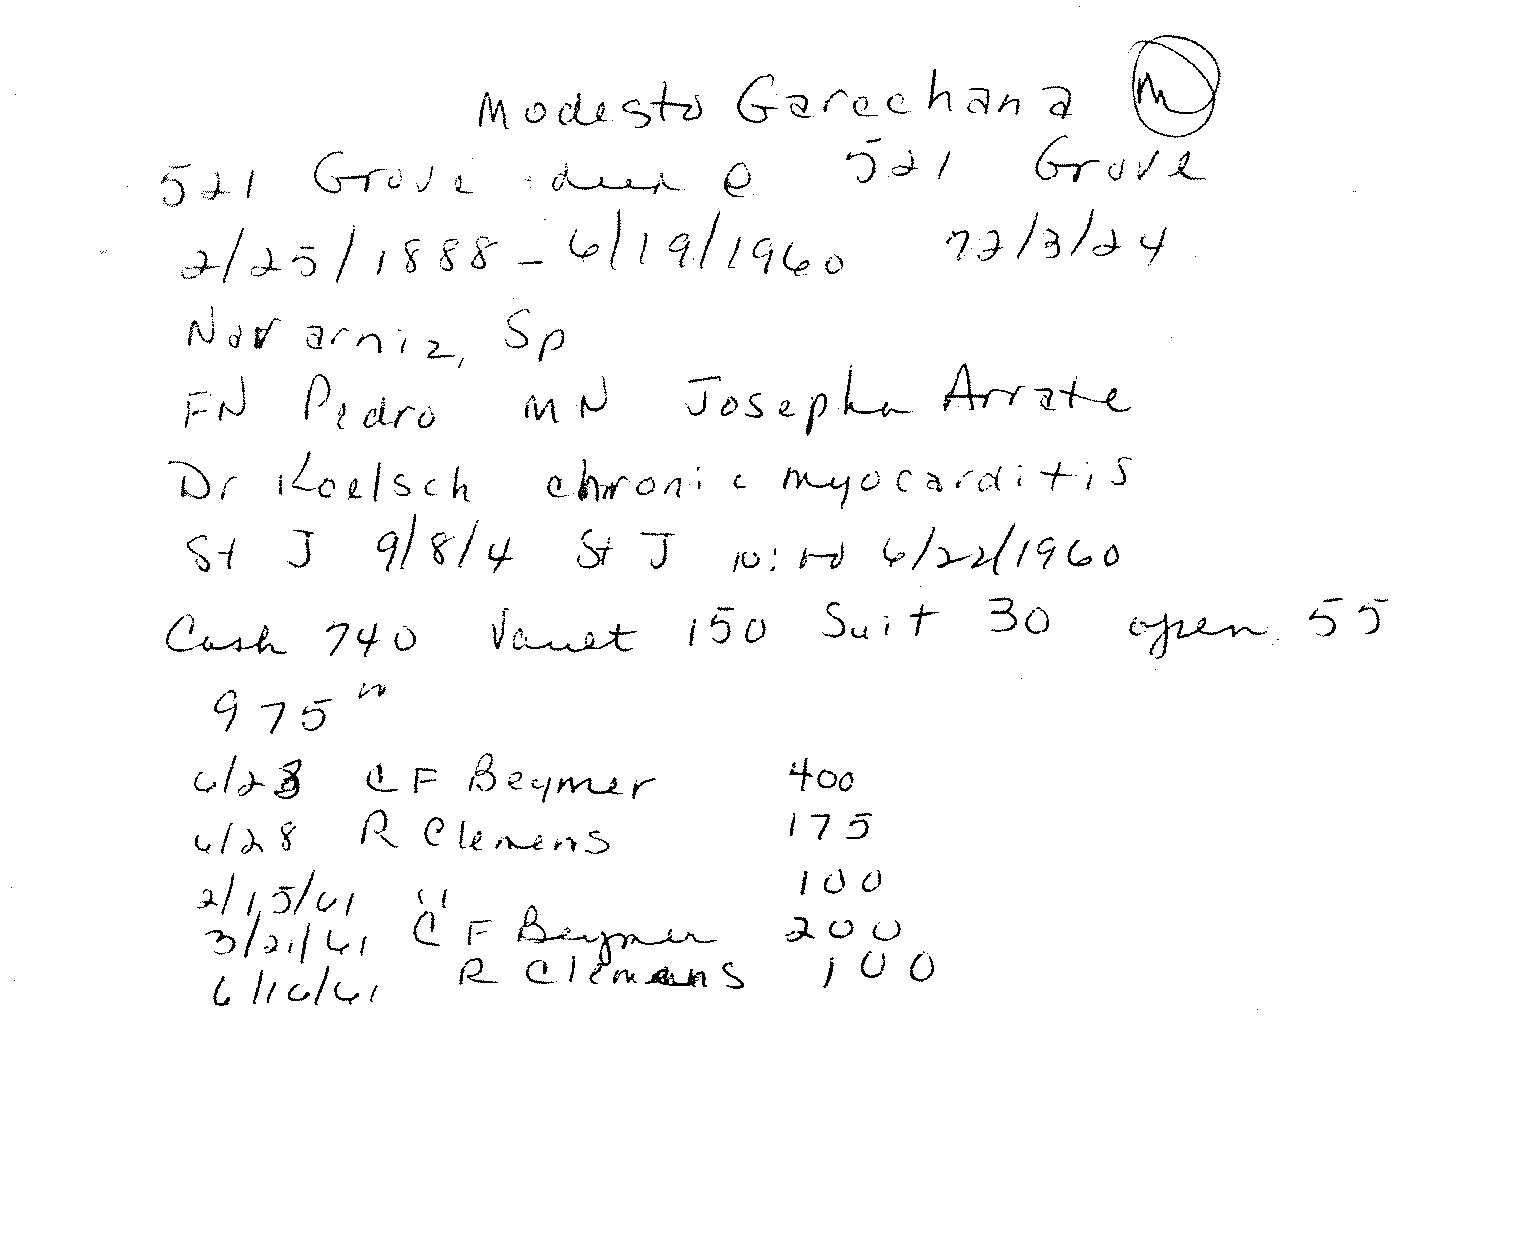 Modesto Garechana M
521 Grove died @ 521 Grove
2/25/1888 - 6/19/1960 72/3/24
Navarniz, Sp
FN Pedro MN Josepha Arrate
Dr Koelsch chronic myocarditis
St J 9/8/4 St J 10:00 6/22/1960
Cash 740 Vault 150 Suit 30 open 55
975 00
6/28 C F Beymer 400
6/28 R Clemens 175
2/15/61 " 100
3/21/61 C F Beymer 200
6/16/61 R Clemens 100